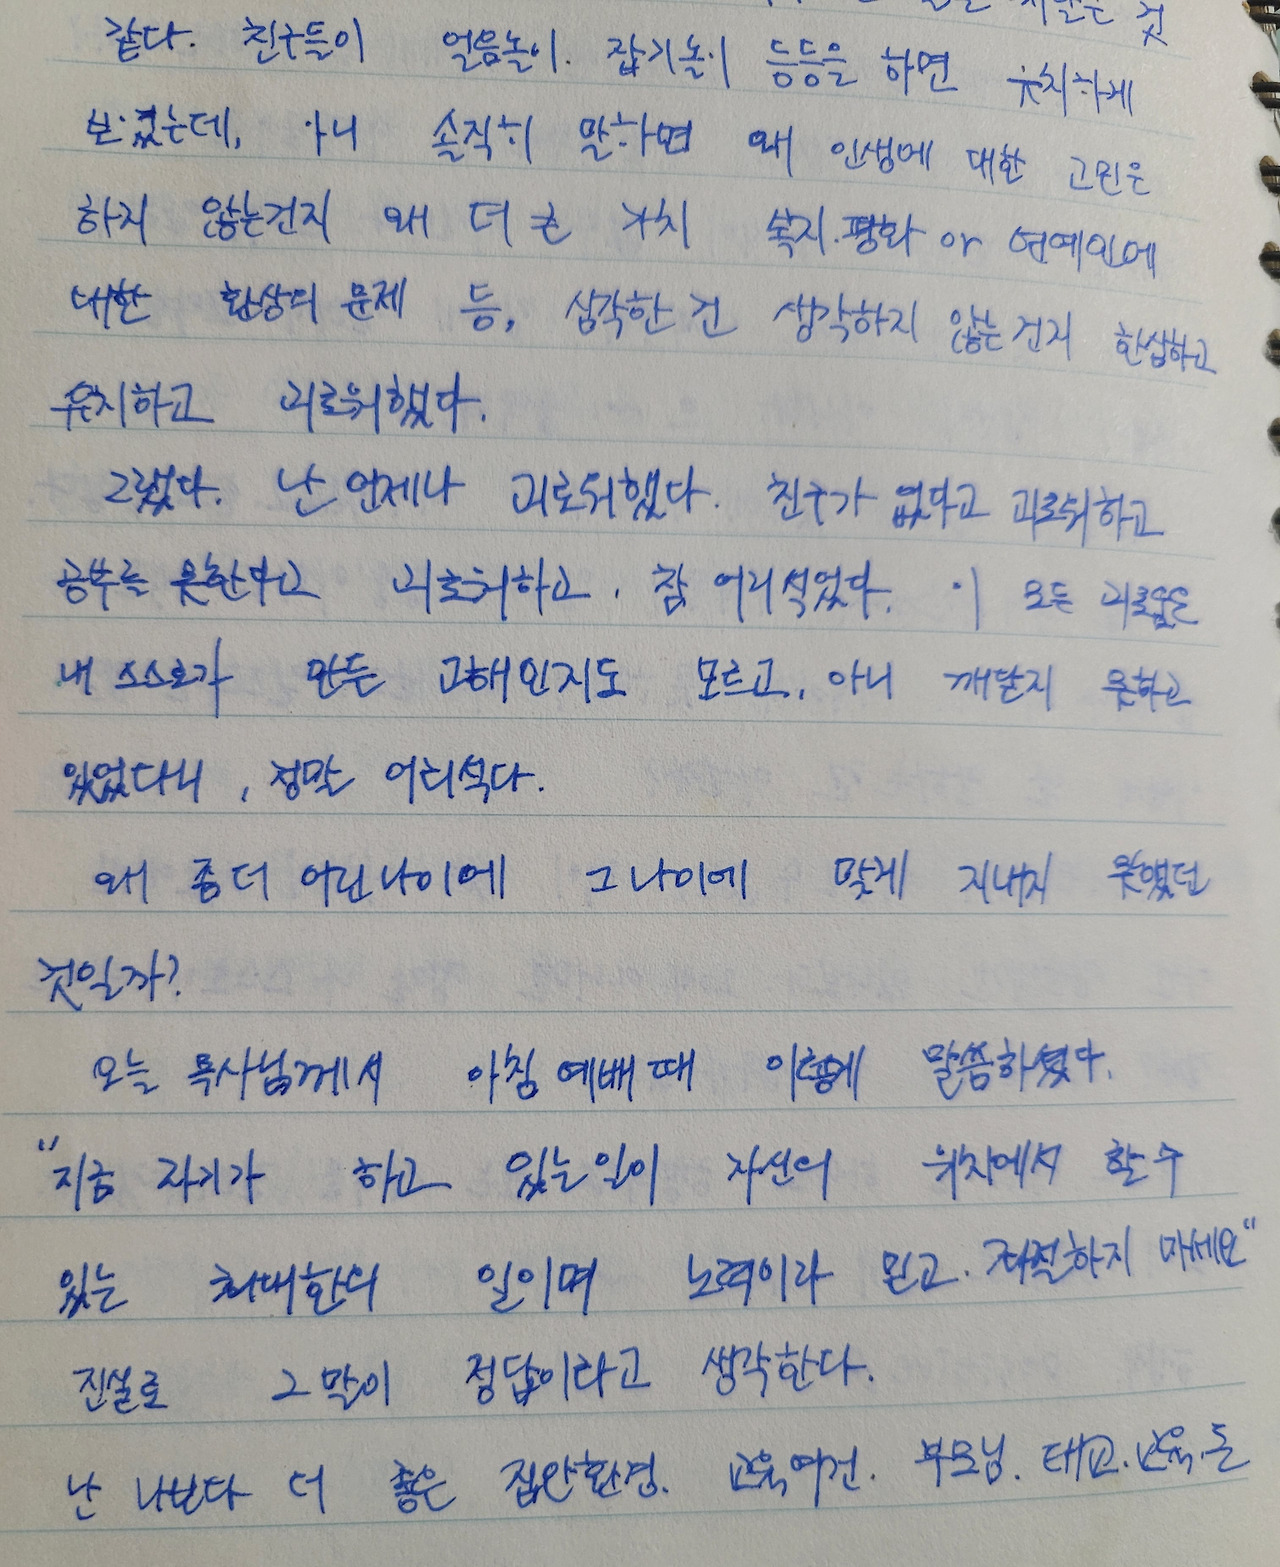 것
같다. 친구들이 얼음놀이. 잡기놀이 등등을 하면 유치하게
보였는데, 아니 솔직히 말하면 왜 인생에 대한 고민은
하지 않는건지 왜 더 큰 가치 복지.평화 or 연예인에
대한 환상의 문제 등, 심각한 건 생각하지 않는건지 한심하고
유치하고 괴로워했다.
그랬다. 난 언제나 괴로워했다. 친구가 없다고 괴로워하고
공부를 못한다고 괴로워하고, 참 어리석었다. 이 모든 괴로움은
내 스스로가 만든 고해인지도 모르고, 아니 깨닫지 못하고
있었다니, 정말 어리석다.
왜 좀더 어린나이에 그나이에 맞게 지내지 못했던
것일까?
오늘 목사님께서 아침 예배 때 이렇게 말씀하셨다.
"지금 자기가 하고 있는일이 자신의 위치에서 할 수
있는 최대한의 일이며 노력이라 믿고. 좌절하지 마세요"
진실로 그 말이 정답이라고 생각한다.
난 나보다 더 좋은 집안환경. 교육여건. 부모님. 태교.교육.돈